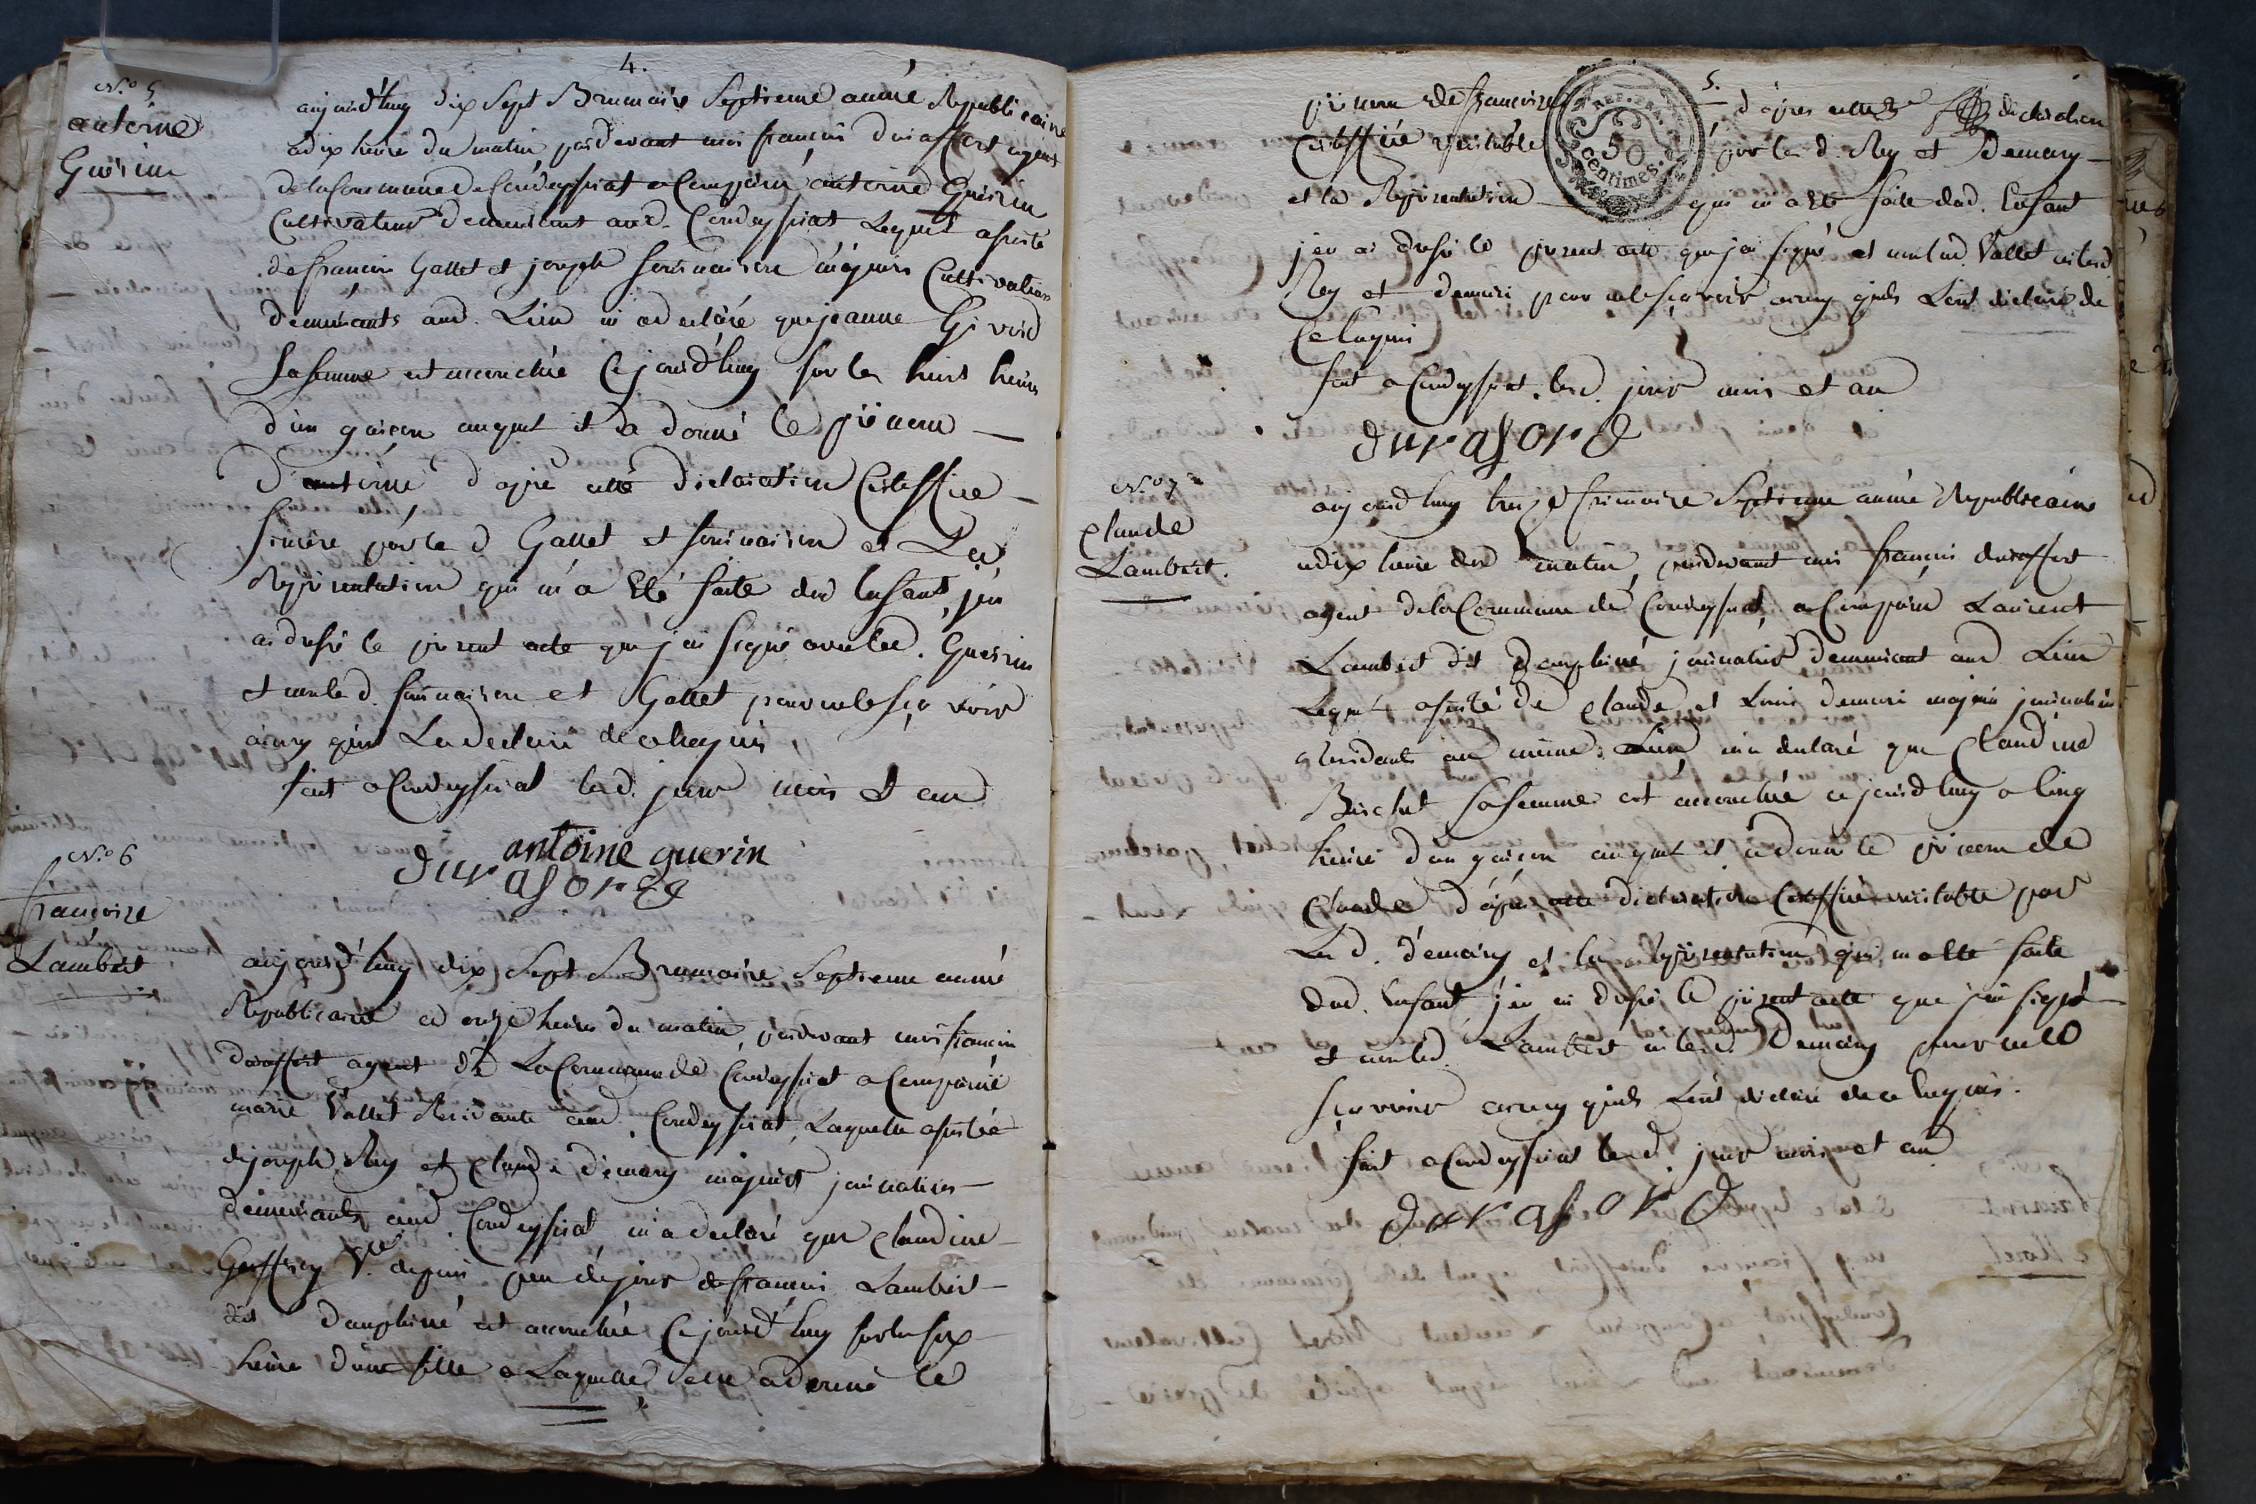 4.
N.o 5
antoine
Guérin
aujourd'huy dix Sept Brumaire Septieme année Republicaine
a dix heure du matin pardevant moi françois durafort agent
de la Commune de Condeyssiat a Comparu antoine Guérin
Cultivateur demeurant aud. Condeyssiat Lequel assisté
de françois Gallet et joseph majeurs Cultivateurs
demeurants aud. Lieu m'a declaré que jeanne
sa femme est accouchée Cejourd'huy sur les huit heures
d'un garçon auquel il a donné le prénom
d'antoine d'apré cette declaration Certiffiée
sincère par le d Gallet et et La
Représentation qui m'a Eté faite dud Enfant j'en
ai dressé le present acte que j'ai signé avec led. Guérin
et non led. et Gallet pour ne le sçavoir
ainsy qu'ils L'ont declaré de ce Enquis
fait a Condeyssiat led. jour mois et an
antoine guerin
durafort
N.o 6
françoise
Lambert
aujourd'huy dix Sept Brumaire Septieme année
Republicaine a onze heures du matin, pardevant moi françois
durassort agent de La Commune de Condeyssiat a Comparué
marie Vallet Residante aud. Condeyssiat, Laquelle assistée
de joseph Rey et Claude demary majeurs journaliers
demeurants aud. Condeyssiat, m'a declaré que Claudine
Geoffrey V.ve depuis peu de jour de françois Lambert
dit dauphiné est accouchée Cejourd'huy sur les six
heure d'une fille a Laquelle elle a donné le
5.
prénom de françoise d'apres cette declaration
Certiffiée veritable par les d. Rey et Demary
et la Représentation qui m'a Eté faite dud. Enfant
REP. FRA.
50
centimes.
j'en ai dressé le present acte que j'ai signé et non lad. Vallet ni lesd
Rey et demari pour ne le sçavoir ainsy qu'ils L'ont declaré de
Ce Enquis
fait a Condeyssiat led. jour mois et an
durafort
N.o 7
Claude
Lambert.
aujourd'huy treize frimaire Septieme année Republicaine
a dix heure du matin, pardevant moi françois durassort
agent de la Commune de Condeyssiat, a Comparu Laurent
Lambert dit dauphiné journalier demeurant aud Lieu
Lequel assisté de Claude et Louis demari majeurs journaliers
Residants au même Lieu m'a declaré que Claudine
Buchet sa femme est accouchée cejourd'huy a Cinq
heure d'un garçon auquel il a donné le prénom de
Claude d'apré cette declaration Certiffiée veritable par
Les d. demary et la Représentation qui m'a Eté faite
dud. Enfant, j'en ai dressé le present acte que j'ai signé
et non led. Lambert ni lesd. Demary pour ne le
sçavoir ainsy qu'ils L'ont declaré de ce Enquis.
fait a Condeyssiat led. jour mois et an
durafort